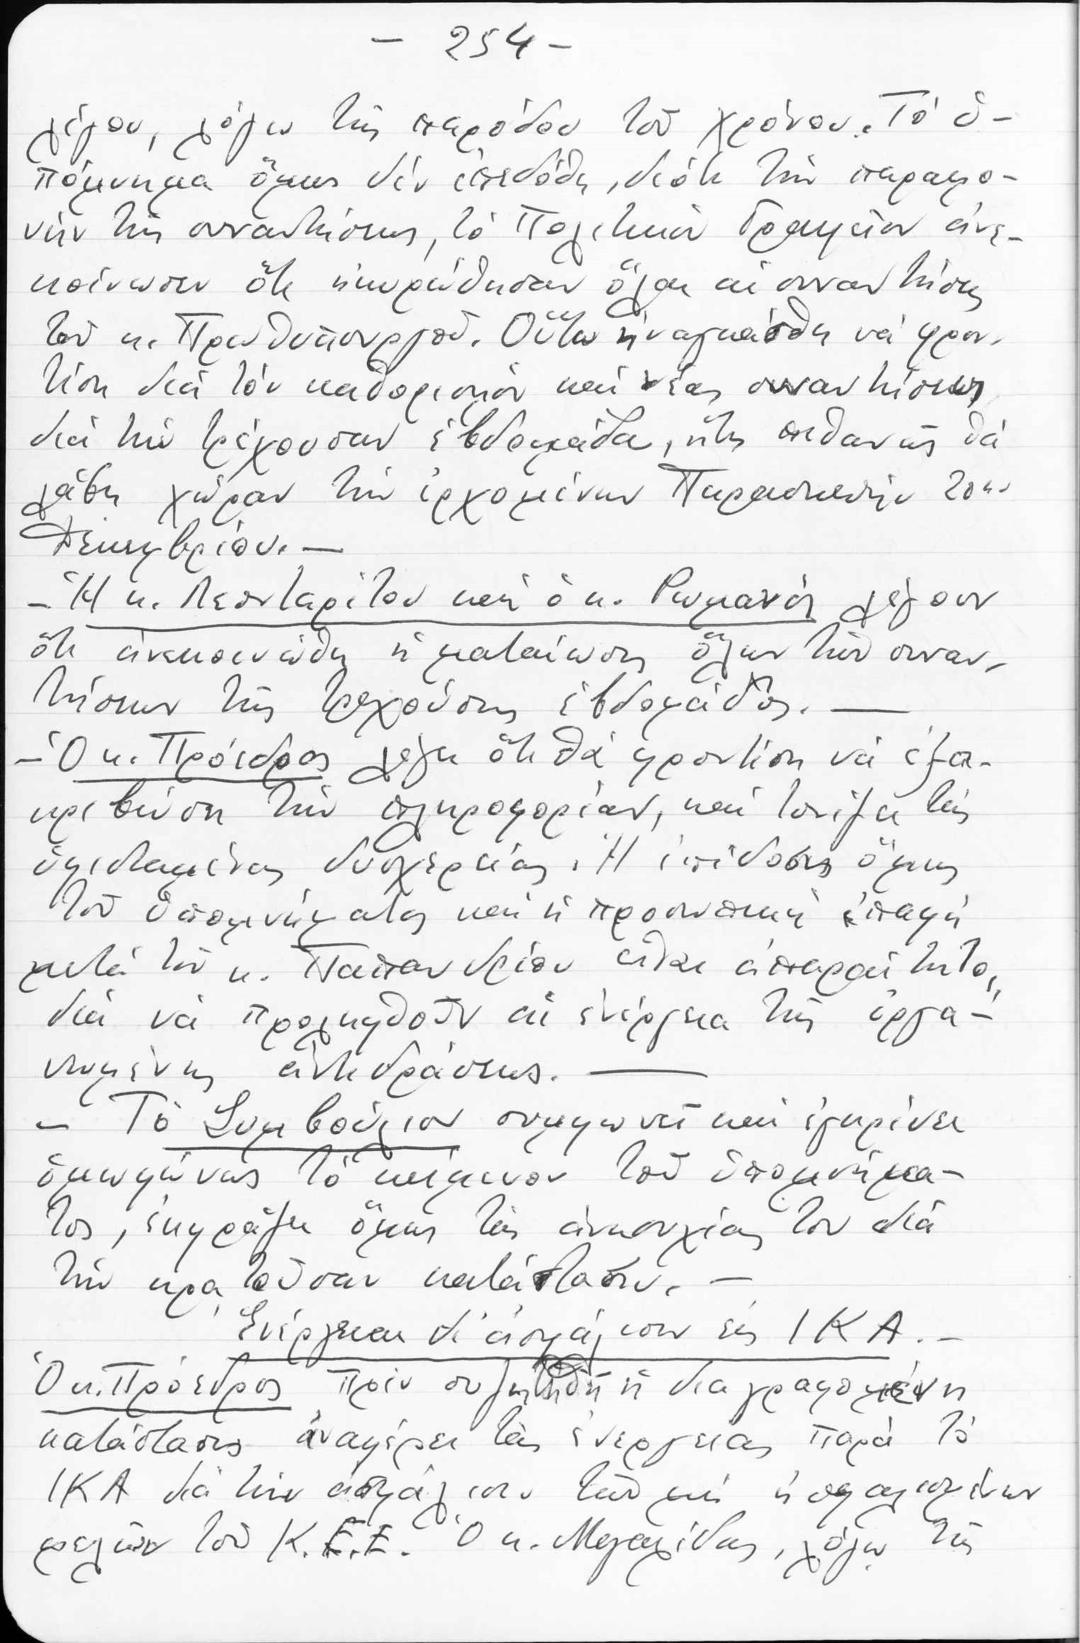 - 254 -
λόγου, λόγω τῆς παρόδου τοῦ χρόνου. Τό ὑ-
πόμνημα ὅμως δέν ἐπεδόθη, διότι τήν παραμο-
νήν τῆς συναντήσεως, τό Πολιτικόν Γραφεῖον ἀνε-
κοίνωσεν ὅτι ἠκυρώθησαν ὅλαι αἱ συναντήσεις
τοῦ κ. Πρωθυπουργοῦ. Οὕτω ἠναγκάσθη νά φρον-
τίση διά τόν καθορισμόν καί νέας συναντήσεως
διά τήν τρέχουσαν ἑβδομάδα, ἥτις πιθανῶς θά
λάβη χώραν τήν ἐρχομένην Παρασκευήν
Δεκεμβρίου. —
- Ἡ κ. Λεονταρίτου καί ὁ κ. Ρωμανός λέγουν
ὅτι ἀνεκοινώθη ἡ ματαίωσις ὅλων τῶν συναν-
τήσεων τῆς τρεχούσης ἑβδομάδος. —
- Ὁ κ. Πρόεδρος λέγει ὅτι θά φροντίση νά ἐξα-
κριβώση τήν πληροφορίαν, καί τονίζει τάς
ὑφισταμένας δυσχερείας. Ἡ ἐπίδοσις ὅμως
τοῦ ὑπομνήματος καί ἡ προσωπική ἐπαφή
μετά τοῦ κ. Παπανδρέου εἶναι ἀπαραίτητος,
διά νά προληφθοῦν αἱ ἐνέργειαι τῆς ὀργα-
νωμένης ἀντιδράσεως. —
- Τό Συμβούλιον συμφωνεῖ καί ἐγκρίνει
ὁμοφώνως τό κείμενον τοῦ ὑπομνήμα-
τος, ἐκφράζει ὅμως τάς ἀνησυχίας του διά
τήν κρατοῦσαν κατάστασιν. —
Ἐνέργειαι δι' ἀσφάλισιν εἰς ΙΚΑ. -
Ὁ κ. Πρόεδρος πρίν συζητηθῆ ἡ διαγραφομένη
κατάστασις ἀναφέρει τάς ἐνεργείας παρά τό
ΙΚΑ διά τήν ἀσφάλισιν τῶν μή ἠσφαλισμένων
μελῶν τοῦ Κ.Ε.Ε. Ὁ κ. Μιχαηλίδης, λόγω τῆς